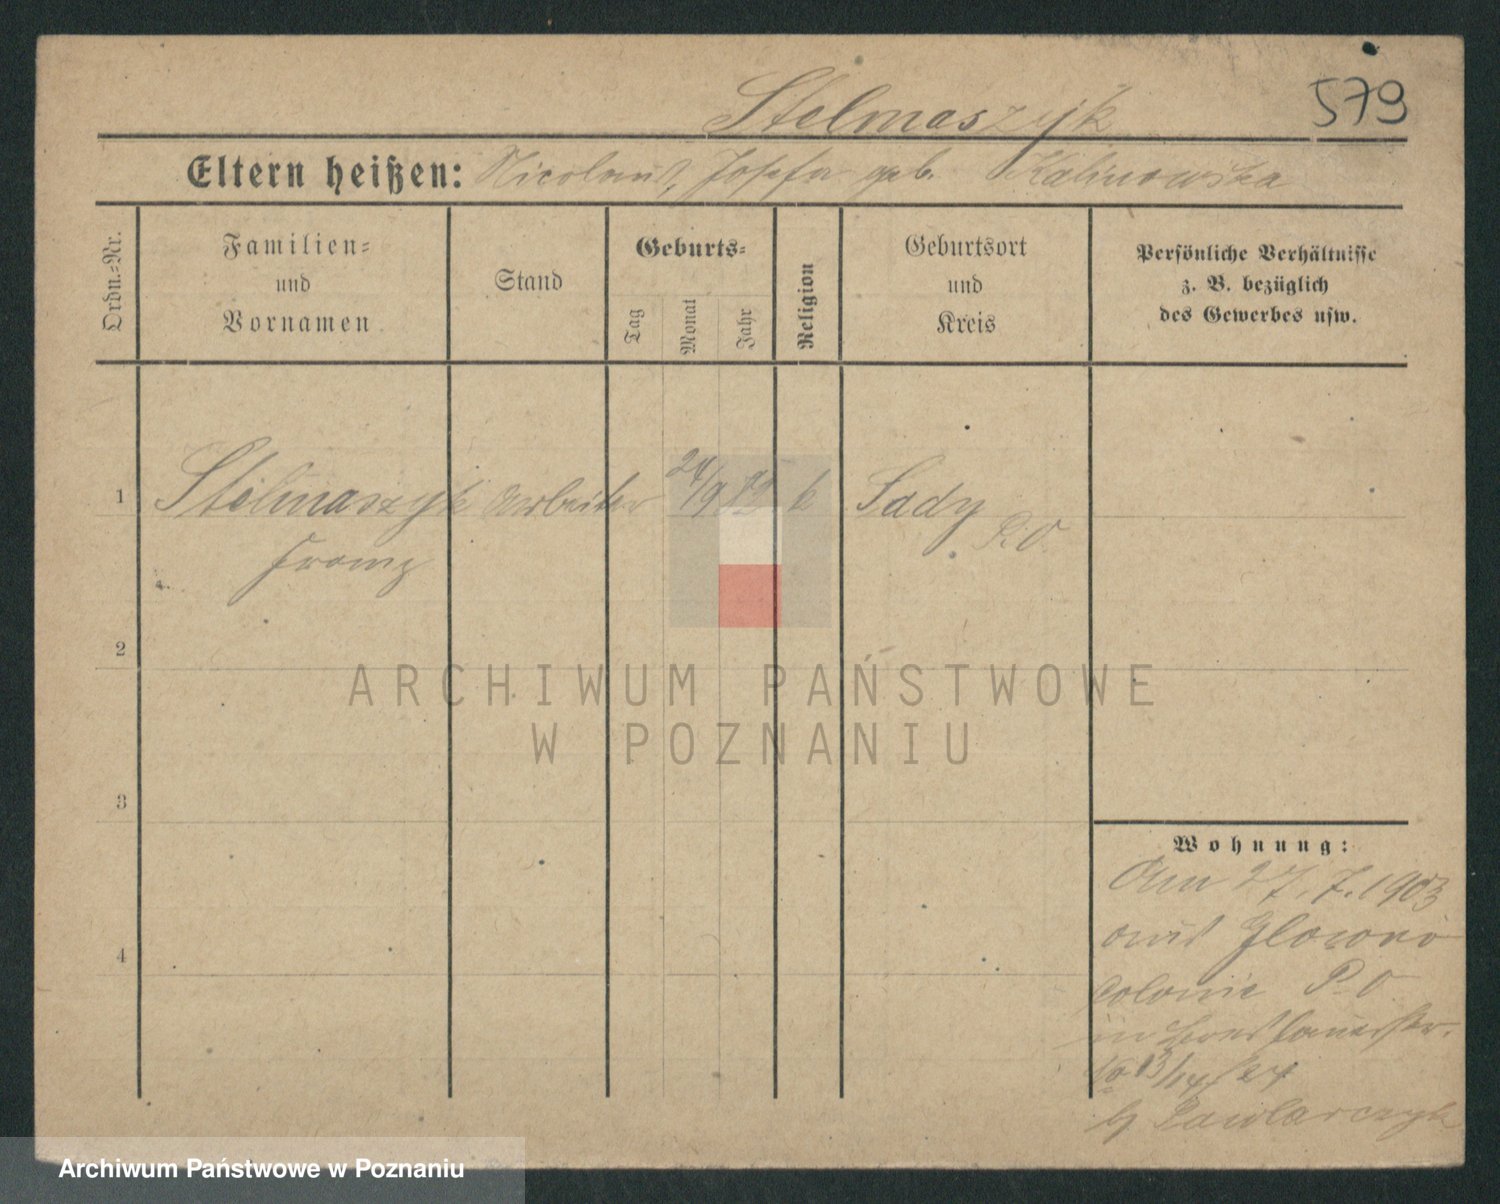 Stelmaszyk
579
Eltern heißen: Nicolaus, Josefa geb. Kalinowska
Ordn.-Nr.
Familien-
und
Vornamen
Stand
Geburts-
Tag
Monat
Jahr
Religion
Geburtsort
und
Kreis
Persönliche Verhältnisse
z. B. bezüglich
des Gewerbes usw.
1 Stelmaszyk Arbeiter 24/9 82 k Sady
Franz P. O.
2
3
4
Wohnung:
Am 27.7.1903
aus Glowno
Colonie P. O
in
13/14
Pawlarczyk
ARCHIWUM PAŃSTWOWE
W POZNANIU
Archiwum Państwowe w Poznaniu